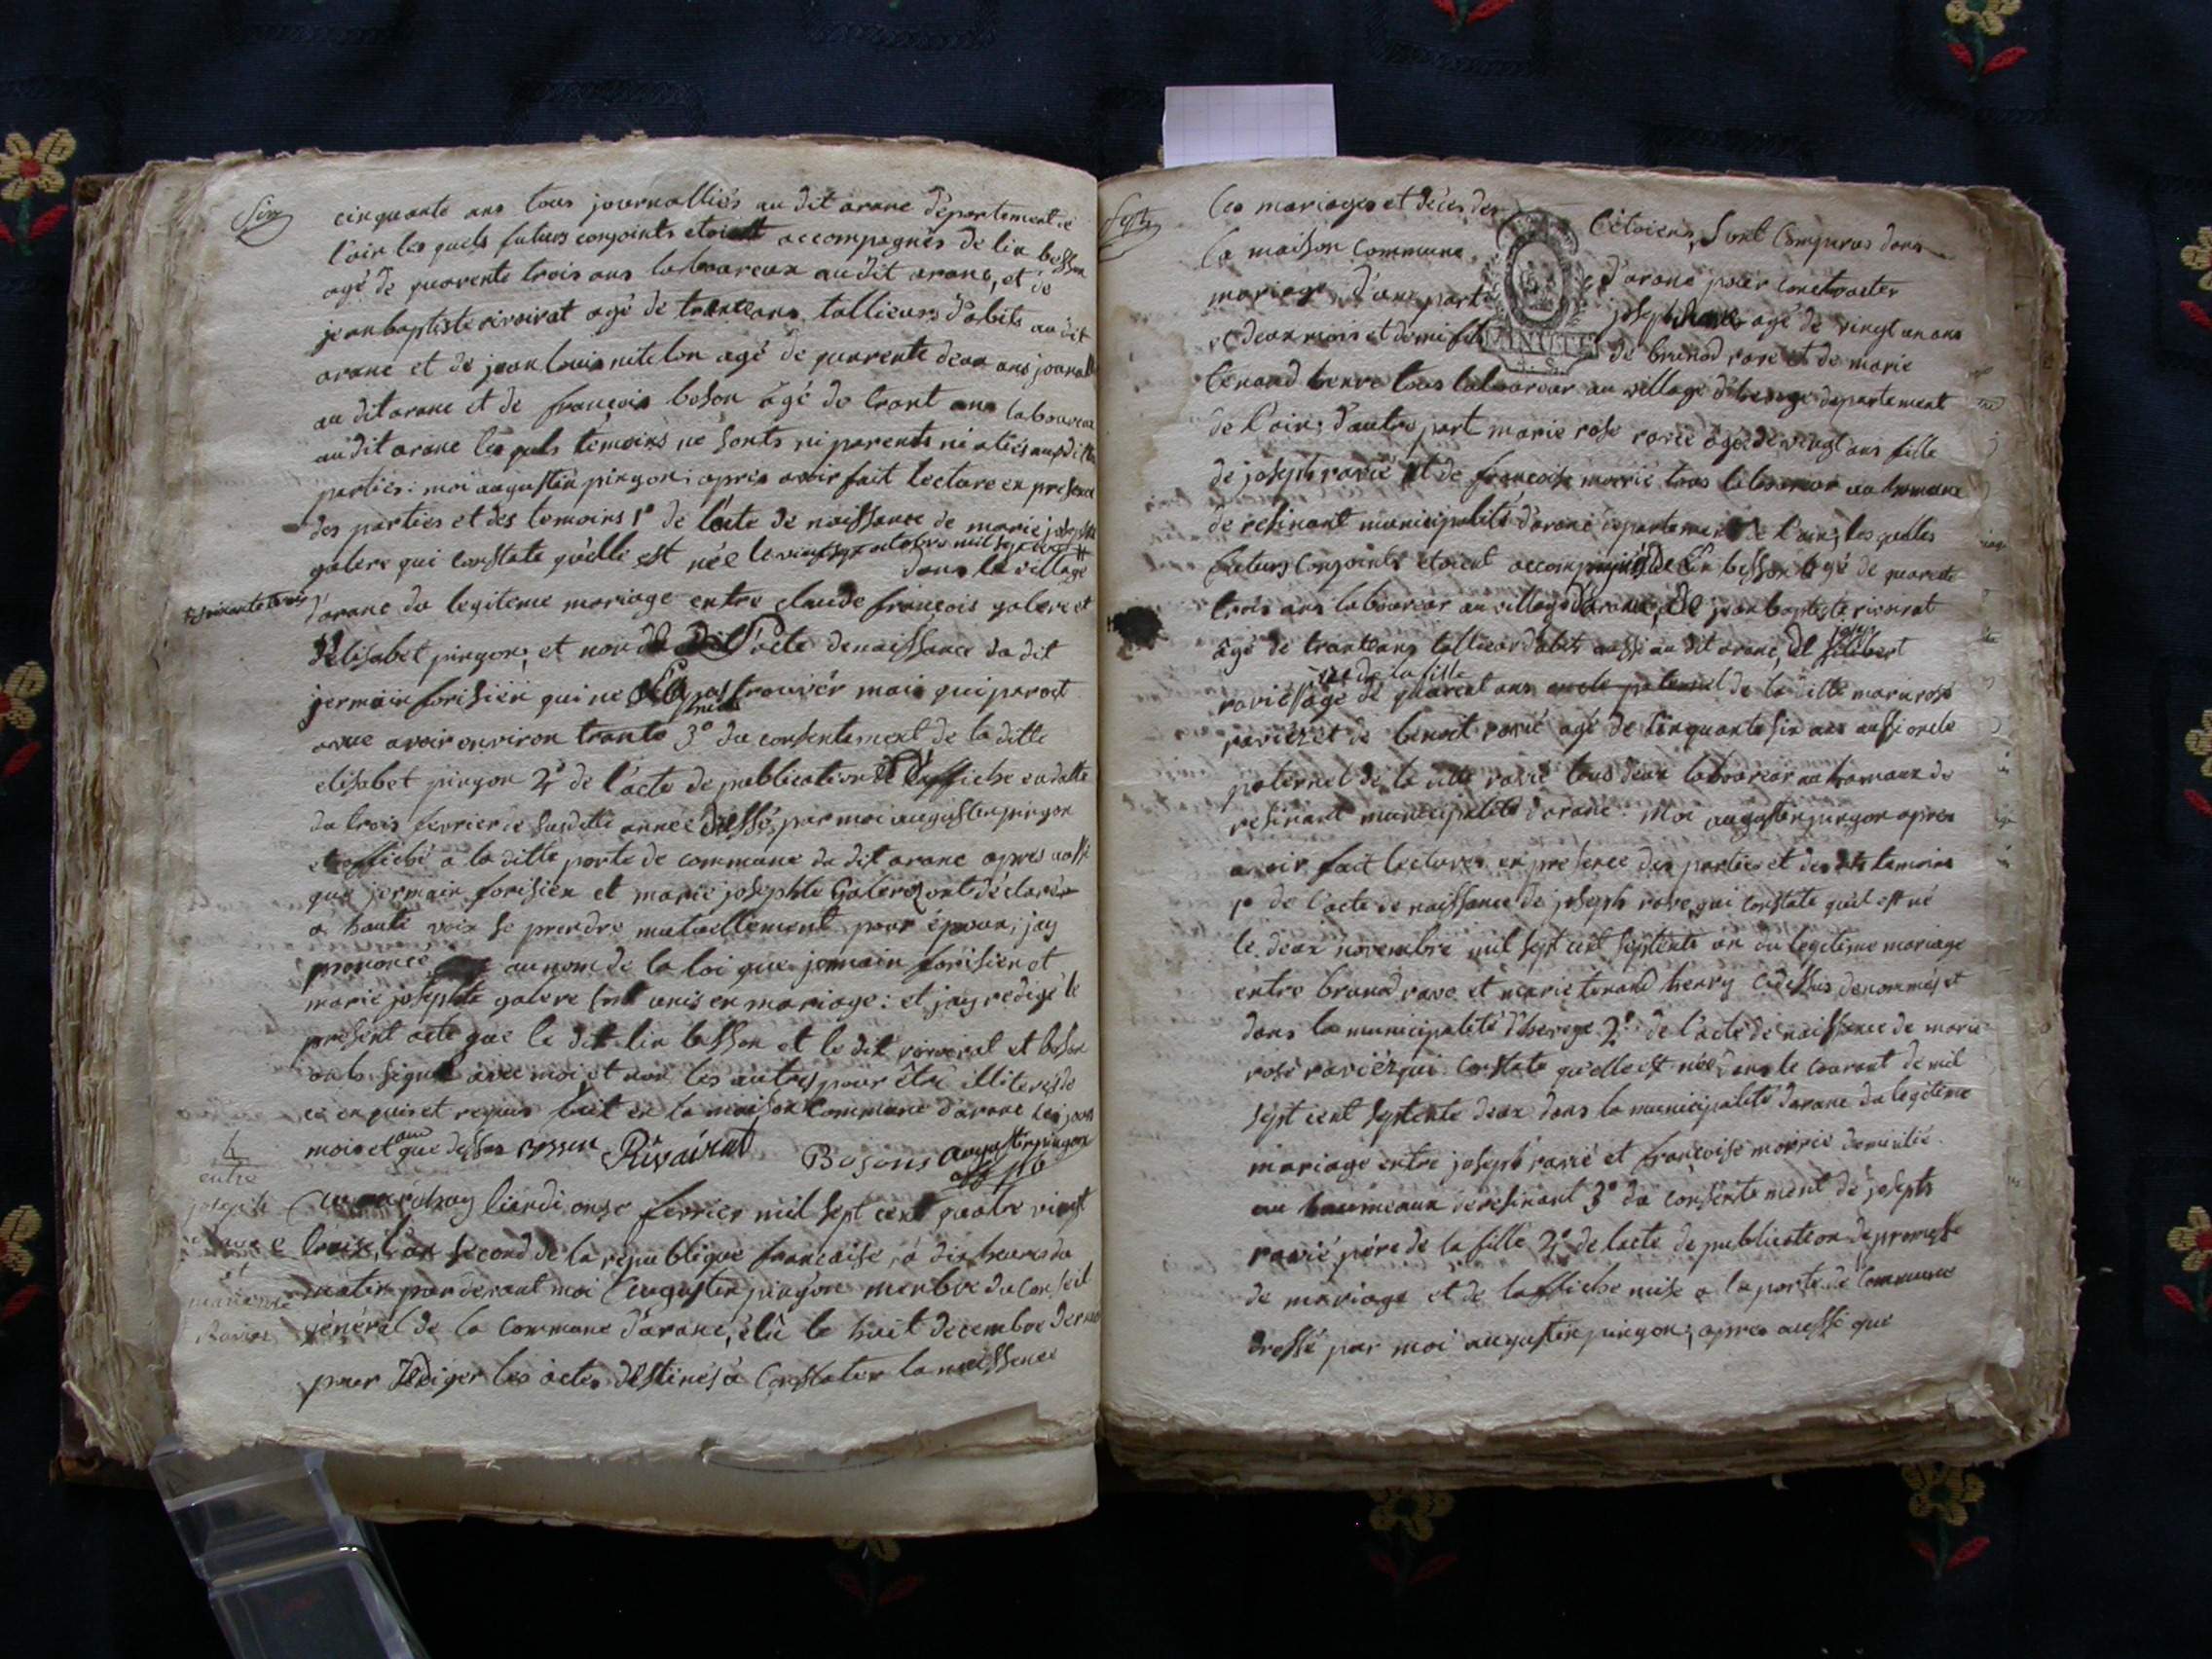 Six
cinquante ans tous journalliés au dit arane département de
l'ain les quels futurs conjoints etoient accompagnés de lin besson
agé de quarente trois ans laboureux au dit arane, et de
jean baptiste rivoirat agé de tranteans tallieurs d'abits au dit
arane et de jean louis nitelon agé de quarente deux ans journall
au dit arane et de francois boson âgé de trant ans laboureux
au dit arane les quels témoins ne sonts ni parents ni aliés auxdittes
parties: moi augustin pingon; apres avoir fait lecture en presence
des parties et des temoins 1° de lacte de naissance de marie josephte
galere qui constate quelle est née le vingt six octobre mil sept cent #
dans le village
# soixante trois
d'arane du legiteme mariage entre claude francois galere et
d'elisabet pingon; et non de l'acte de naissance du dit
germain forisién qui ne pas trouvér mais qui paroit
avue avoir environ trante 3° du consentement de la ditte
elisabet pingon 4° de l'acte de publication et d'affiche en datte
du trois fevrier de susditte année dressé, par moi augustin pingon
et affiché a la ditte porte de commune du dit arane apres aussi
que jermain forisien et marie josephte Galere ont déclarér
a haute voix se prendre mutuellement pour époux; jay
prononcé au nom de la loi que jermain forisien et
marie josephte galere sont unis en mariage: et jay redigé le
présent acte que le dit lin besson et le dit rivoirat et boson
onts signé avec moi et non les autres pour être illiterés de
ce enquis et requis fait en la maison commune d'arane les jour
mois et an que dessus Besson Rivoirat Bosons augustin pingon
off p b
4
entre
joseph
rave
et
marierose
Ravier
aujourdhuy liundi onse fevrier mil sept cent quatre vingt
treize, l'an second de la république francaise, à dix heures du
matin par devant moi augustin pingon menbre du conseil
général de la commune d'arane, élû le huit decembre dernier
pour rediger les actes destinés à constater la naissence
sept
les mariages et décès des citoiens, sont comparus dans
la maison commune d'arane pour contracter
mariage, d'une part joseph rave agé de vingt un ans
et deux mois et demi fils de brunod rave et de marie
tenand henre tous laboureur au village d'herege departement
de l'ain; d'autre part marie rose ravie agée de vingt ans fille
de joseph ravié et de francoise morrié tous laboureur au hameaux
de résinant municipalité d'arane departement de l'ain; les quelles
futurs conjoints etoient accompagnés de lin besson agé de quarente
trois ans laboureur au village d'arane, de jean baptiste rivoirat
âgé de tranteans tallieur dabits aussi au dit arane, de filibert
ravié agé de quarent ans oncle paternel de la ditte marie rose
raviéz et de benoit ravié agé de cinquante six ans aussi oncle
paternel de la ditte ravié tous deux laboureur au hameaux de
resinant municipalité d'arane. Moi augustin pingon apres
avoir fait lectures en presence des parties et des dits temoins
1° de l'acte de naissance de joseph rave qui constate quil est né
le deux novembre mil sept cent septente un du legitime mariage
entre brunod rave et marie tenand henry cidessus denommés et
dans la municipalité d'herege 2° de l'acte de naissance de marie
rose raviéz qui constate quelle est née dans le courant de mil
sept cent septente deux dans la municipalité d'arane du legitime
mariage entre joseph ravié et francoise morrié domicilié
au haumeaux de resinant 3° du consente ment de joseph
ravié père de la fille 4° de lacte de publication de promesse
de mariage et de laffiche mise a la porte de commune
dressé par moi augustin pingon; apres aussi que